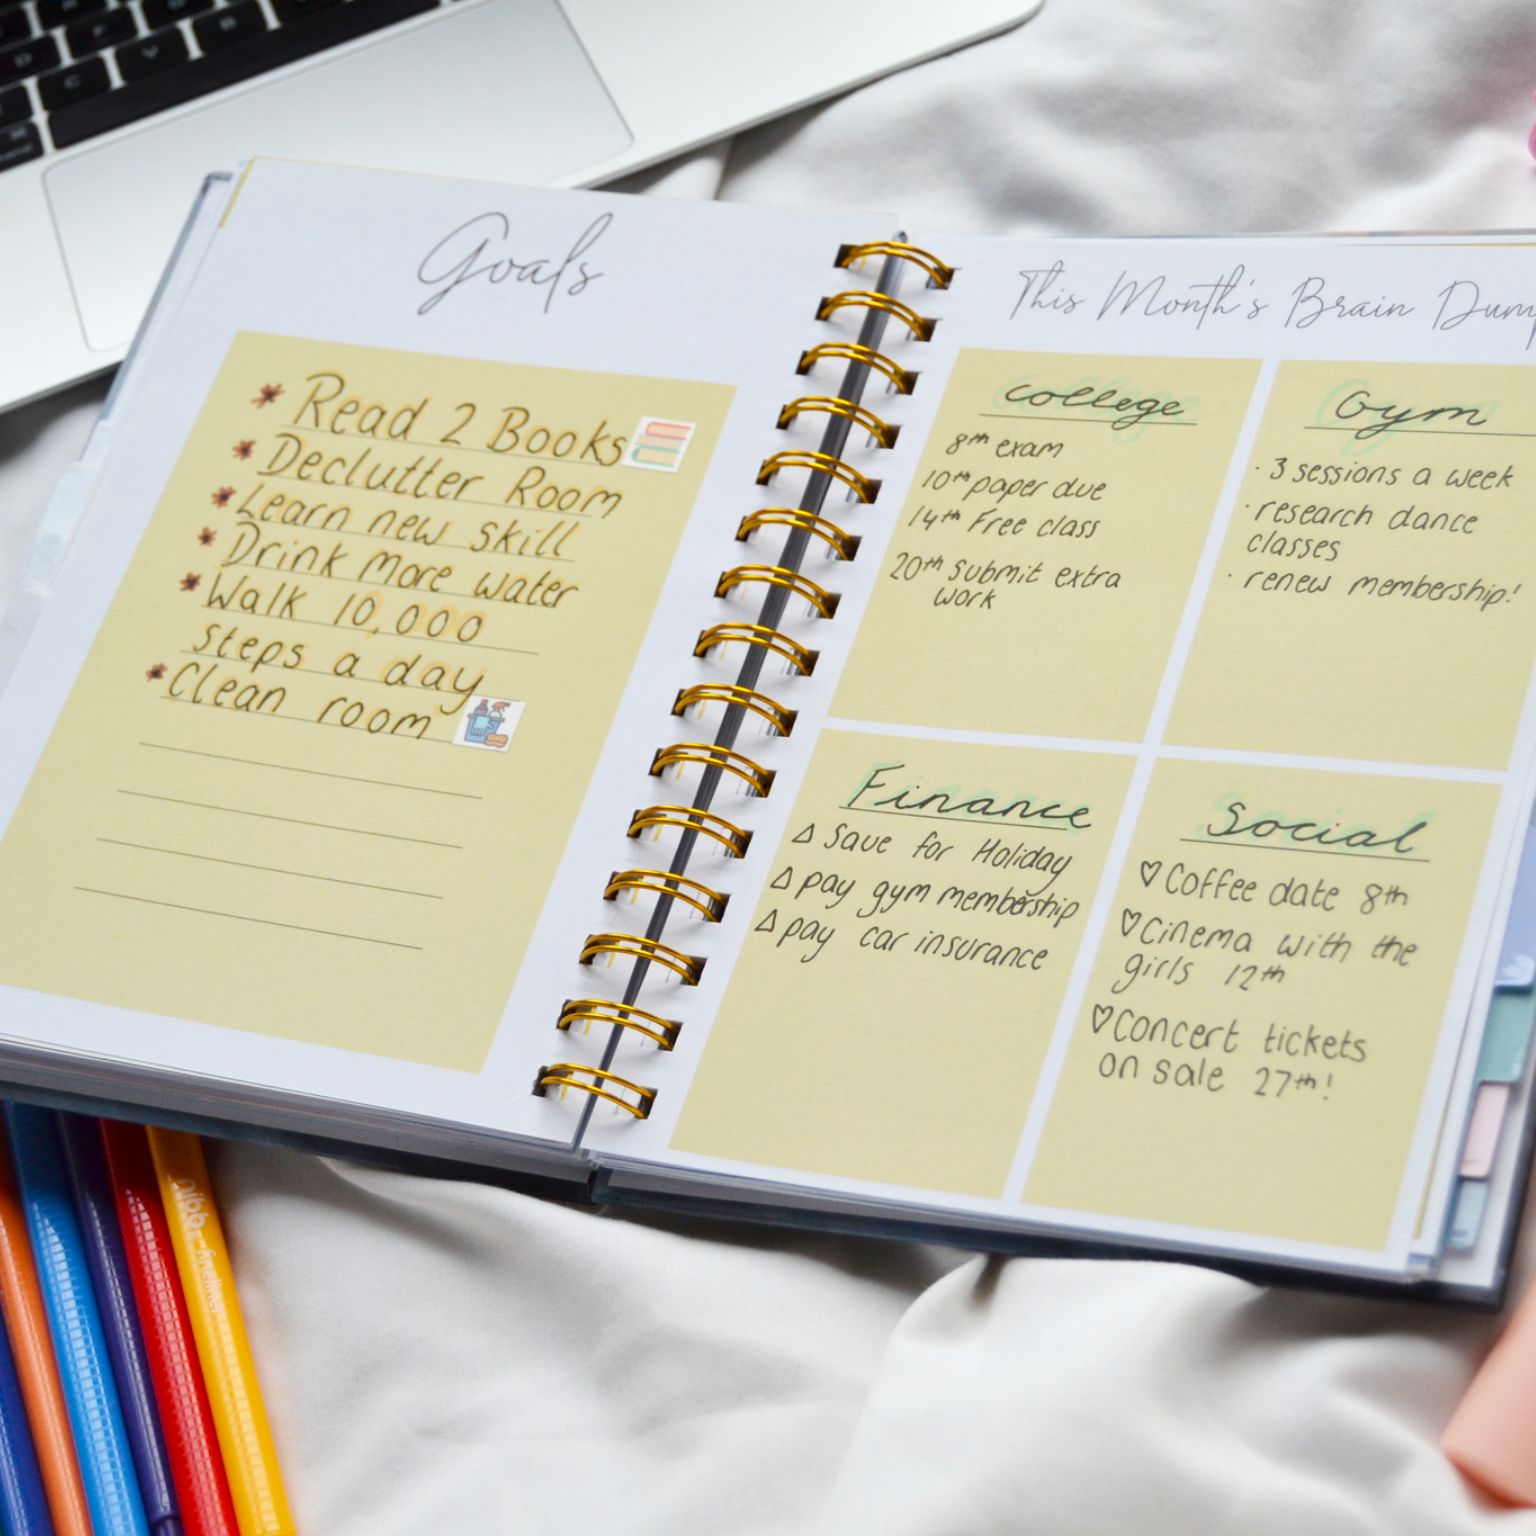 Goals
Read 2 Books
Declutter Room
Learn new skill
Drink more water
Walk 10,000
steps a day
Clean room
This Month's Brain Dump
college
8th exam
10th paper due
14th Free class
20th submit extra
work
Gym
· 3 sessions a week
· research dance
classes
· renew membership!
Finance
△ Save for Holiday
△ pay gym membership
△ pay car insurance
Social
♡ Coffee date 8th
♡ Cinema with the
girls 12th
♡ Concert tickets
on sale 27th!